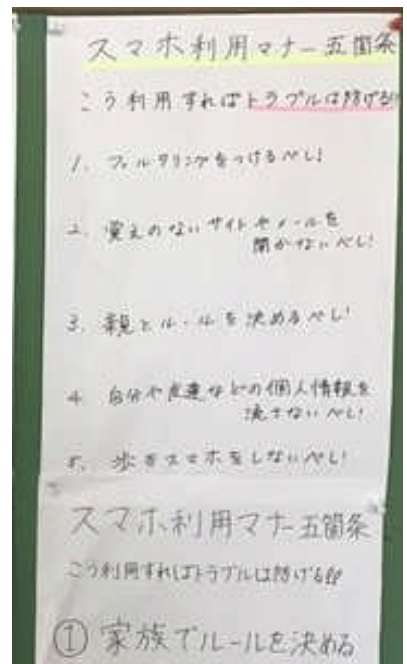 スマホ利用マナー五箇条
こう利用すればトラブルは防げる!!
1. フィルタリングをつけるべし!
2.覚えのないサイトやメールを
開かないべし!
3. 親とルールを決めるべし!
4 自分や友達などの個人情報を
流さないべし!
5. 歩きスマホをしないべし!
スマホ利用マナー五箇条
こう利用すればトラブルは防げる!!
① 家族でルールを決める